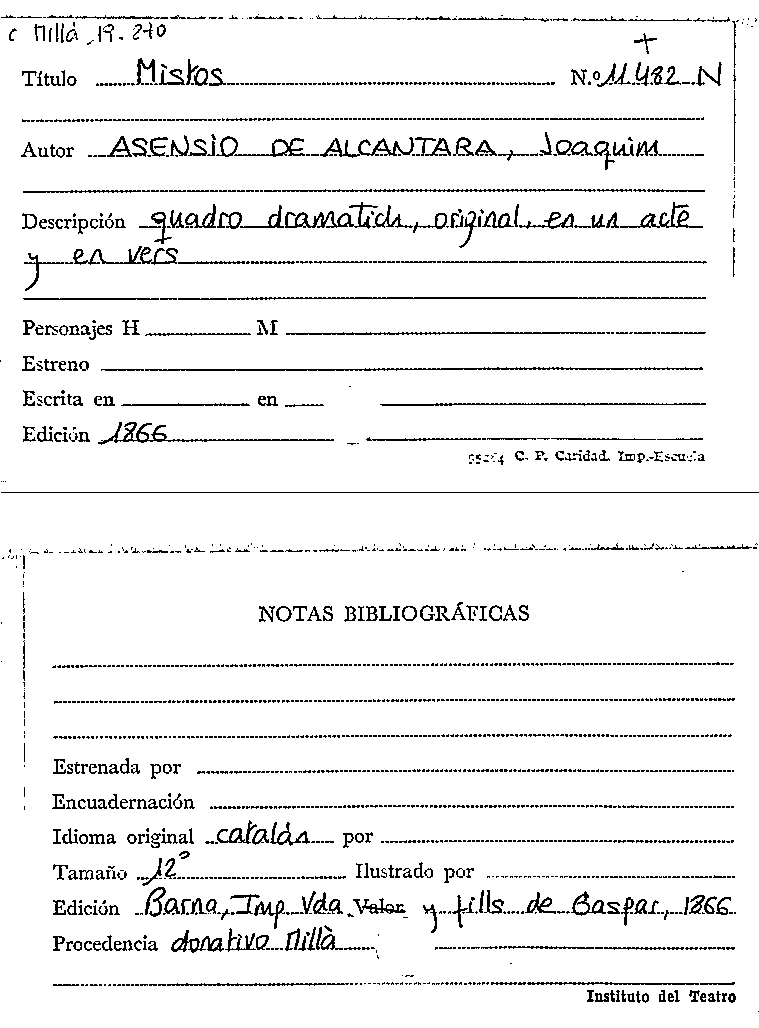 C Millà 19.240
+
Título Mistos N.º 11.482 N
Autor ASENSIO DE ALCANTARA, Joaquim
Descripción quadro dramatich, original, en un acte
y en vers
Personajes H M
Estreno
Escrita en en
Edición 1866
C. P. Caridad. Imp.-Escuela
NOTAS BIBLIOGRÁFICAS
Estrenada por
Encuadernación
Idioma original catalán por
Tamaño 12º Ilustrado por
Edición Barna, Imp Vda Valor y fills de Gaspar, 1866
Procedencia donativo Millà
Instituto del Teatro